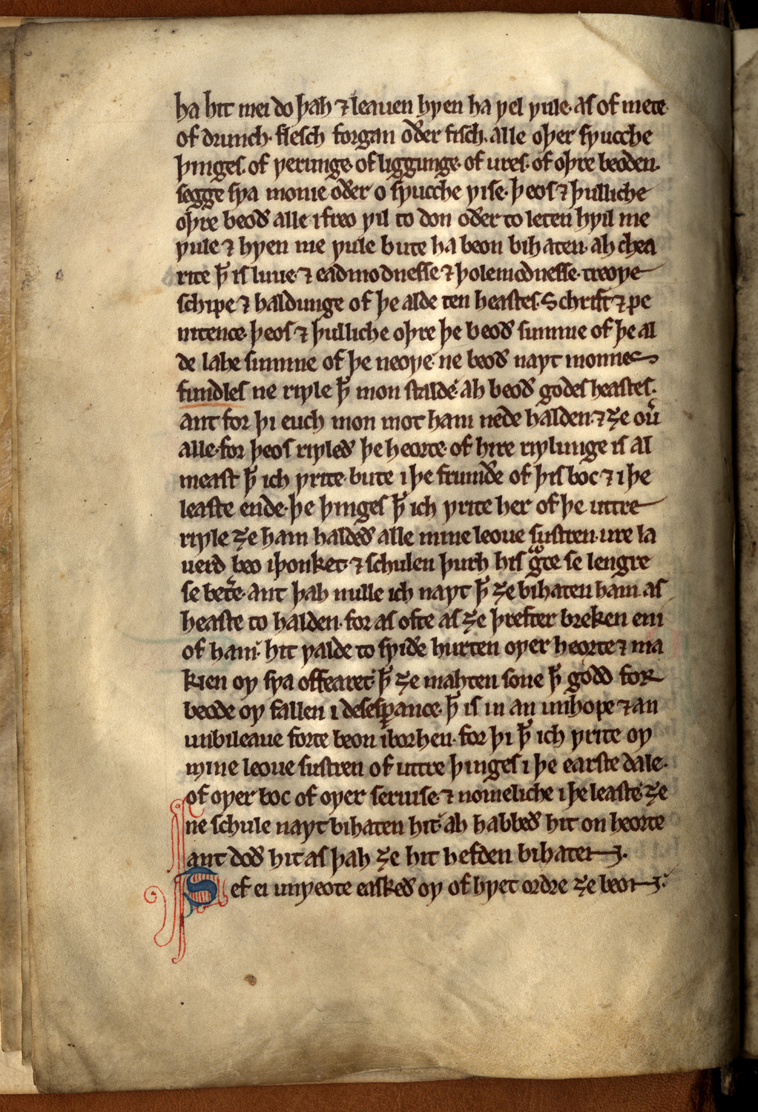 ha hit mei do þah ⁊ leauen hƿen ha ƿel ƿule· as of mete
of drunch· flesch forgan oðer fisch· alle oþer sƿucche
þinges· of ƿerunge· of liggunge· of ures· of oþre beoden·
segge sƿa monie oðer o sƿucche ƿise· þeos ⁊ þulliche
oþre beoð alle i freo ƿil to don oðer to leten hƿil me
ƿule ⁊ hƿen me ƿule bute ha beon bihaten· ah chea
rite þ̄ is luue ⁊ eadmodnesse ⁊ þolemodnesse· treoƿe
schipe ⁊ haldunge of þe alde ten heastes· Schrift ⁊ pe
nitence· þeos ⁊ þulliche oþre þe beoð summe of þe al
de lahe summe of þe neoƿe· ne beoð naƿt monnes
fundles ne riƿle þ̄ mon stalde· ah beoð godes heastes·
ant for þi euch mon mot ham nede halden· ⁊ ȝe ou̓
alle· for þeos riƿleð þe heorte· of hire riƿlunge is al
meast þ̄ ich ƿrite· bute i þe frumðe of þis boc ⁊ i þe
leaste ende· þe þinges þ̄ ich ƿrite her of þe uttre
riƿle ȝe ham haldeð alle mine leoue sustren· ure la
uerd beo iþonket· ⁊ schulen þurh his gͣce se lengre
se betᵉ̓· ant þah nulle ich naƿt þ̄ ȝe bihaten ham as
heaste to halden· for as ofte as ȝe þrefter breken eni
of ham· hit ƿalde to sƿiðe hurten oƿer heorte ⁊ ma
kien oƿ sƿa offearet þ̄ ȝe mahten sone þ̄ godd for
beode oƿ fallen i desesꝑance· þ̄ is in an unhope ⁊ an
unbileaue forte beon iborhen· for þi þ̄ ich ƿrite oƿ
mine leoue sustren of uttre þinges i þe earste dale·
of oƿer boc of oƿer seruise ⁊ nomeliche i þe leaste ȝe
ne schule naƿt bihaten hit· ah habbeð hit on heorte
ant doð hit as þah ȝe hit hefden bihaten·
Ȝef ei unƿeote easkeð oƿ of hƿet ordre ȝe beon·